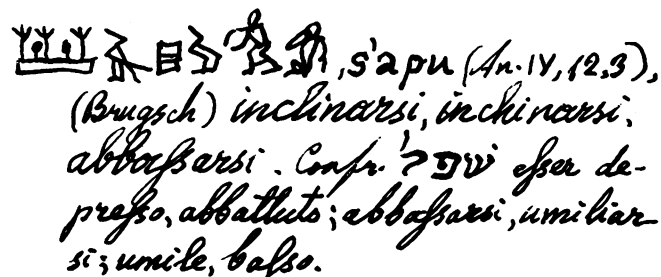 , s'apu (An. IV, 12, 3),
(Brugsch) inclinarsi, inchinarsi,
abbassarsi. Confr. שפל esser de-
presso, abbattuto; abbassarsi, umiliar
si; umile, basso.